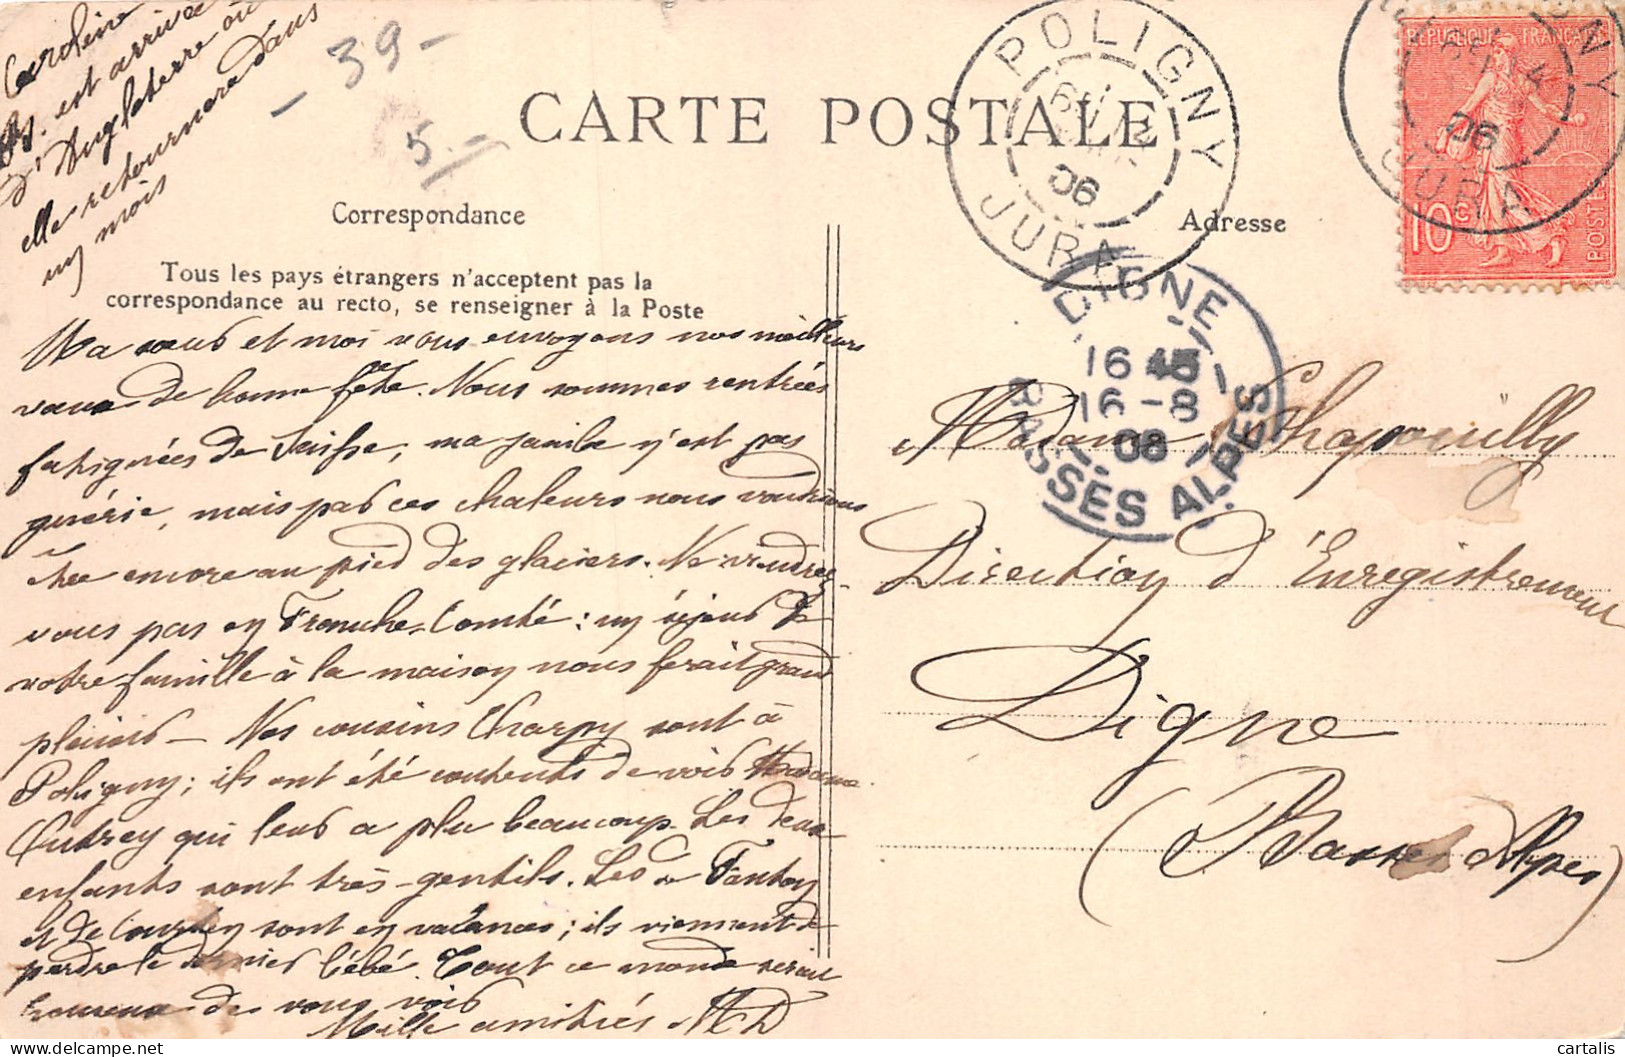 Caroline
est arrivée
d'Angleterre où
elle retournera dans
un mois
- 39 -
5.-
CARTE POSTALE
Correspondance
Adresse
Tous les pays étrangers n'acceptent pas la
correspondance au recto, se renseigner à la Poste
POLIGNY
06
JURA
RÉPUBLIQUE FRANÇAISE
10c
POSTES
06
JURA
DIGNE
16
16-8
BASSES ALPES
Ma sœur et moi vous envoyons nos meilleurs
vœux de bonne fête. Nous sommes rentrées
fatiguées de Suisse, ma jambe n'est pas
guérie, mais par ces chaleurs nous voudrions
être encore au pied des glaciers. Ne viendrez
vous pas en Franche-Comté : un séjour de
votre famille à la maison nous ferait grand
plaisir — Nos cousins Charpy sont à
Poligny ; ils ont été contents de voir Madame
Outrey qui leur a plu beaucoup. Les deux
enfants sont très-gentils. Les de
et de sont en vacances ; ils viennent de
perdre le dernier bébé. Tout ce monde serait
heureux de vous voir
Mille amitiés MD
Madame Chapouilly
Direction d'Enregistrement
Digne
(Basses Alpes)
cartalis